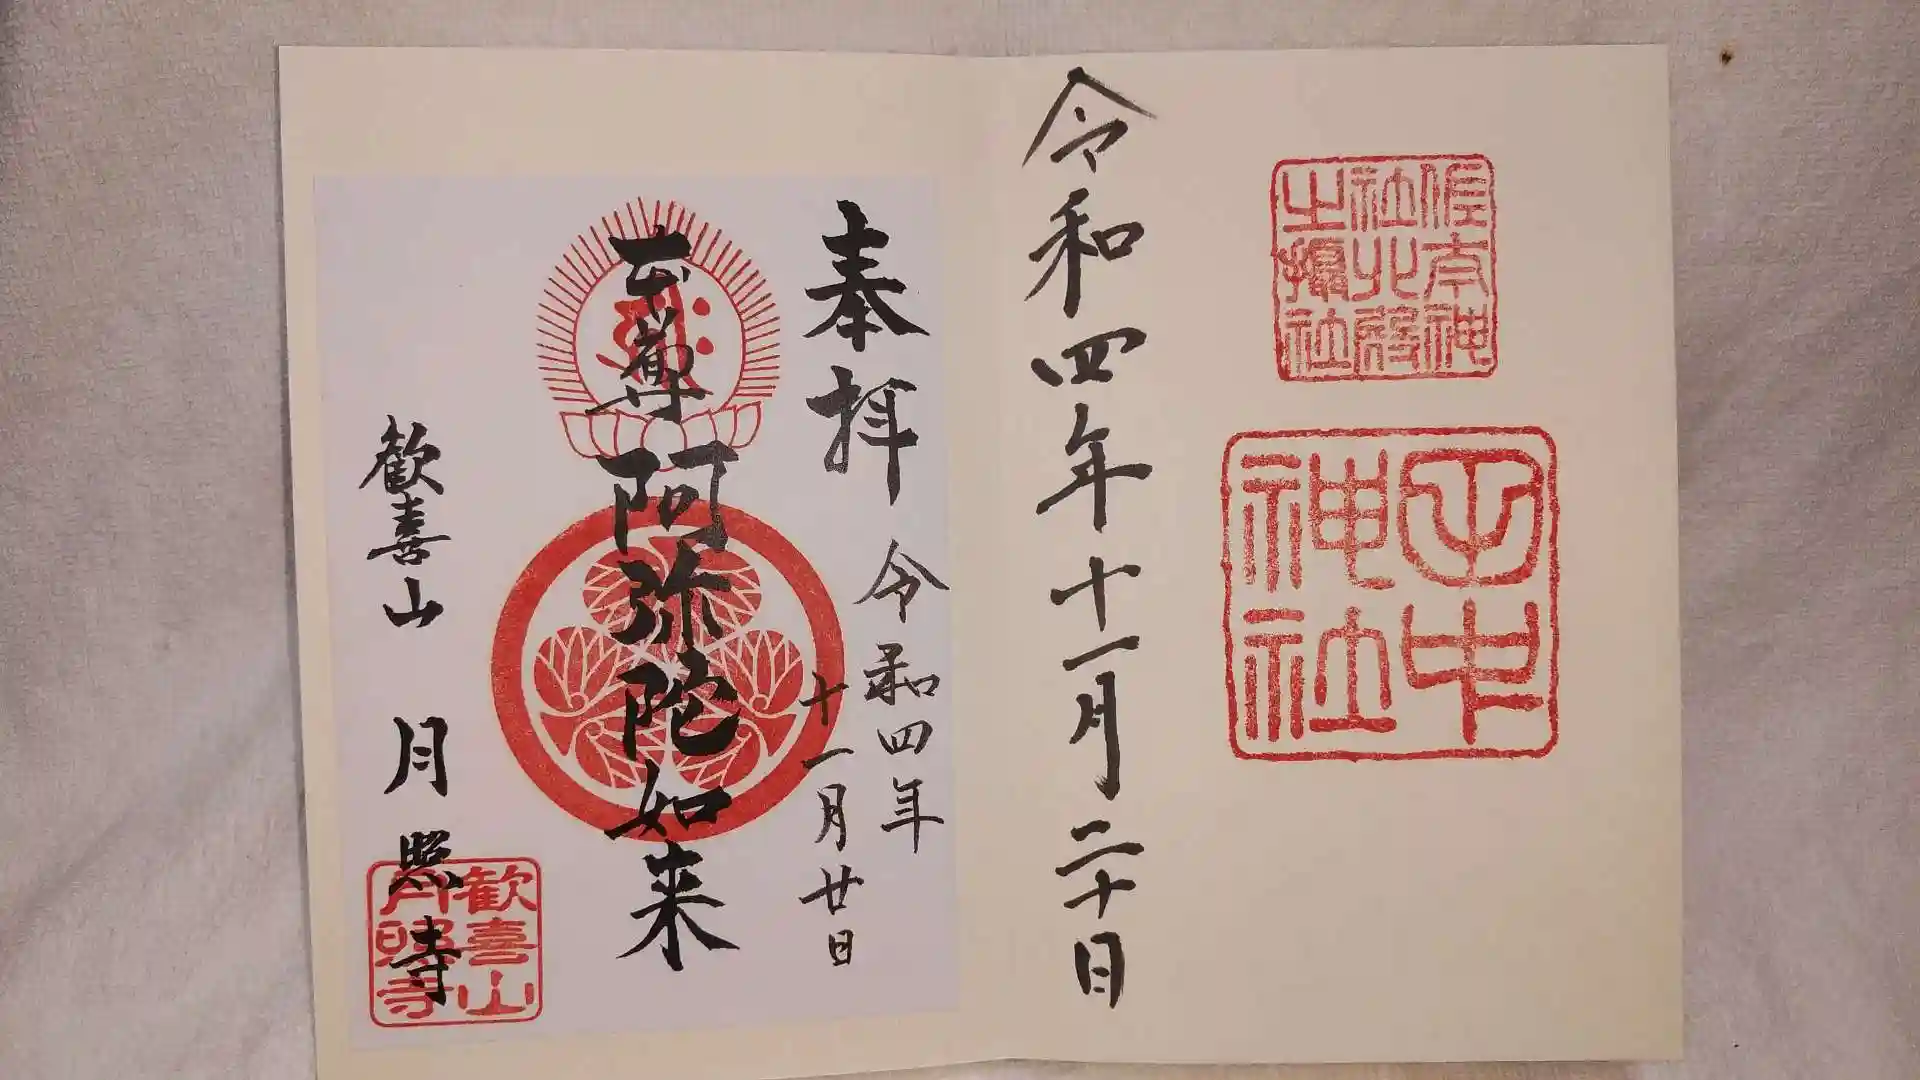 佐太神
社北殿
之攝社
田中
神社
令和四年十一月二十日
奉拝
令和四年
十一月廿日
本尊 阿弥陀如来
歓喜山 月照寺
歓喜山
月照寺